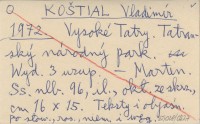 O KOŠTIAL Vladimír
1972 Vysoké Tatry. Tatran-
ský národný park.
Wyd. 3 uzup. - Martin.
Ss. nlb. 96, il., okł. ze skóry,
cm 16 x 15. Teksty i objaśn.
po słow., ros., niem. i węg.